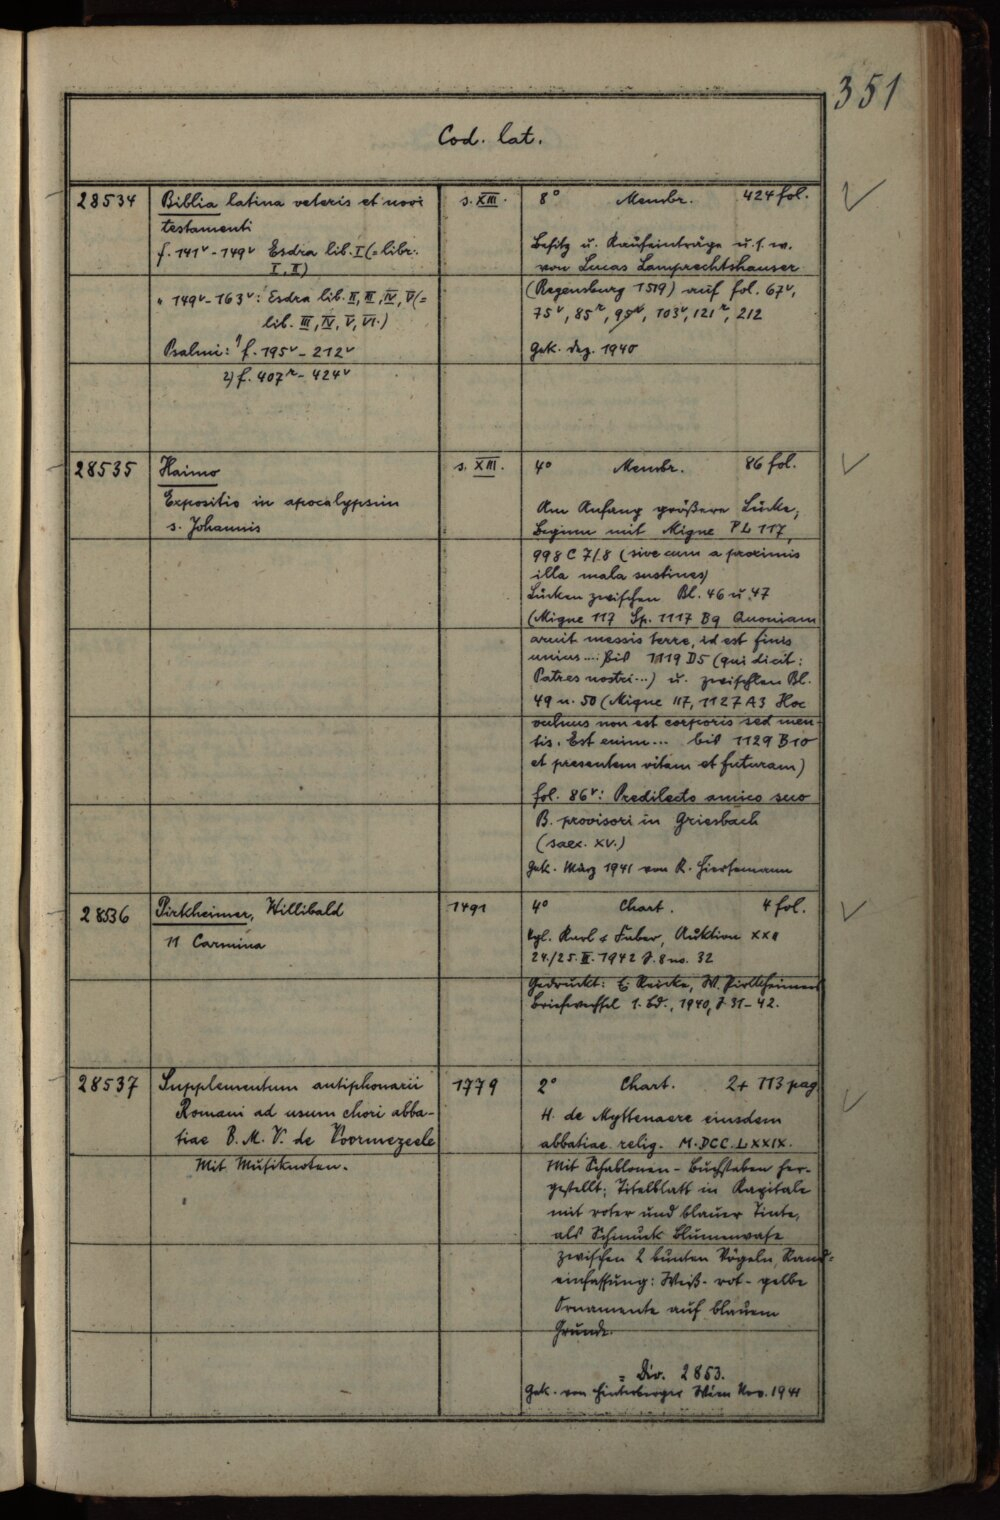 351
Cod. lat.
28534
Biblia latina veteris et novi
testamenti
f. 141v - 149v Esdra lib. I (= libr.
I, II)
" 149v - 163v: Esdra lib. II, III, IV, V (=
lib. III, IV, V, VI.)
Psalmi: 1) f. 195v - 212v
2) f. 407r - 424v
s. XIII.
8° Membr. 424 fol.
Besitz u. Kaufeinträge u.s.w.
von Lucas Lamprechtshauser
(Regensburg 1519) auf fol. 67v,
75v, 85r, 95v, 103v, 121r, 212
Gek. Dez. 1940
28535
Haimo
Expositio in apocalypsim
s. Johannis
s. XIII.
4° Membr. 86 fol.
Am Anfang größere Lücke;
Beginn mit Migne PL 117,
998 C 7/8 (sive cum a proximis
illa mala sustines)
Lücken zwischen Bl. 46 u. 47
(Migne 117 Sp. 1117 B9 Quoniam
aruit messis terre, id est finis
unius ...: bis 1119 D5 (qui dicit:
Patres nostri ...) u. zwischen Bl.
49 u. 50 (Migne 117, 1127 A3 Hoc
vulnus non est corporis sed men-
tis. Est enim ... bis 1129 B10
et presentem vitam et futuram)
fol. 86v: Predilecto amico suo
B. provisori in Griesbach
(saec. XV.)
Gek. März 1941 von K. Hiersemann
28536
Pirkheimer, Willibald
11 Carmina
1491
4° Chart. 4 fol.
Vgl. Karl & Faber, Auktion XXII
24./25. III. 1942 S. 8 no. 32
Gedruckt: E. Reicke, W. Pirkheimers
Briefwechsel 1. Bd., 1940, S 31-42.
28537
Supplementum antiphonarii
Romani ad usum chori abba-
tiae B. M. V. de Voormezeele
Mit Musiknoten.
1779
2° Chart. 2 + 113 pag.
H. de Myttenaere eiusdem
abbatiae relig. M.DCC.LXXIX.
Mit Schablonen-Buchstaben her-
gestellt; Titelblatt in Kapitale
mit roter und blauer Tinte,
als Schmuck Blumenvase
zwischen 2 bunten Vögeln, Rand-
einfassung: Weiß-rot-gelbe
Ornamente auf blauem
Grunde.
= Div. 2853.
Gek. von Hinterberger Wien Nov. 1941